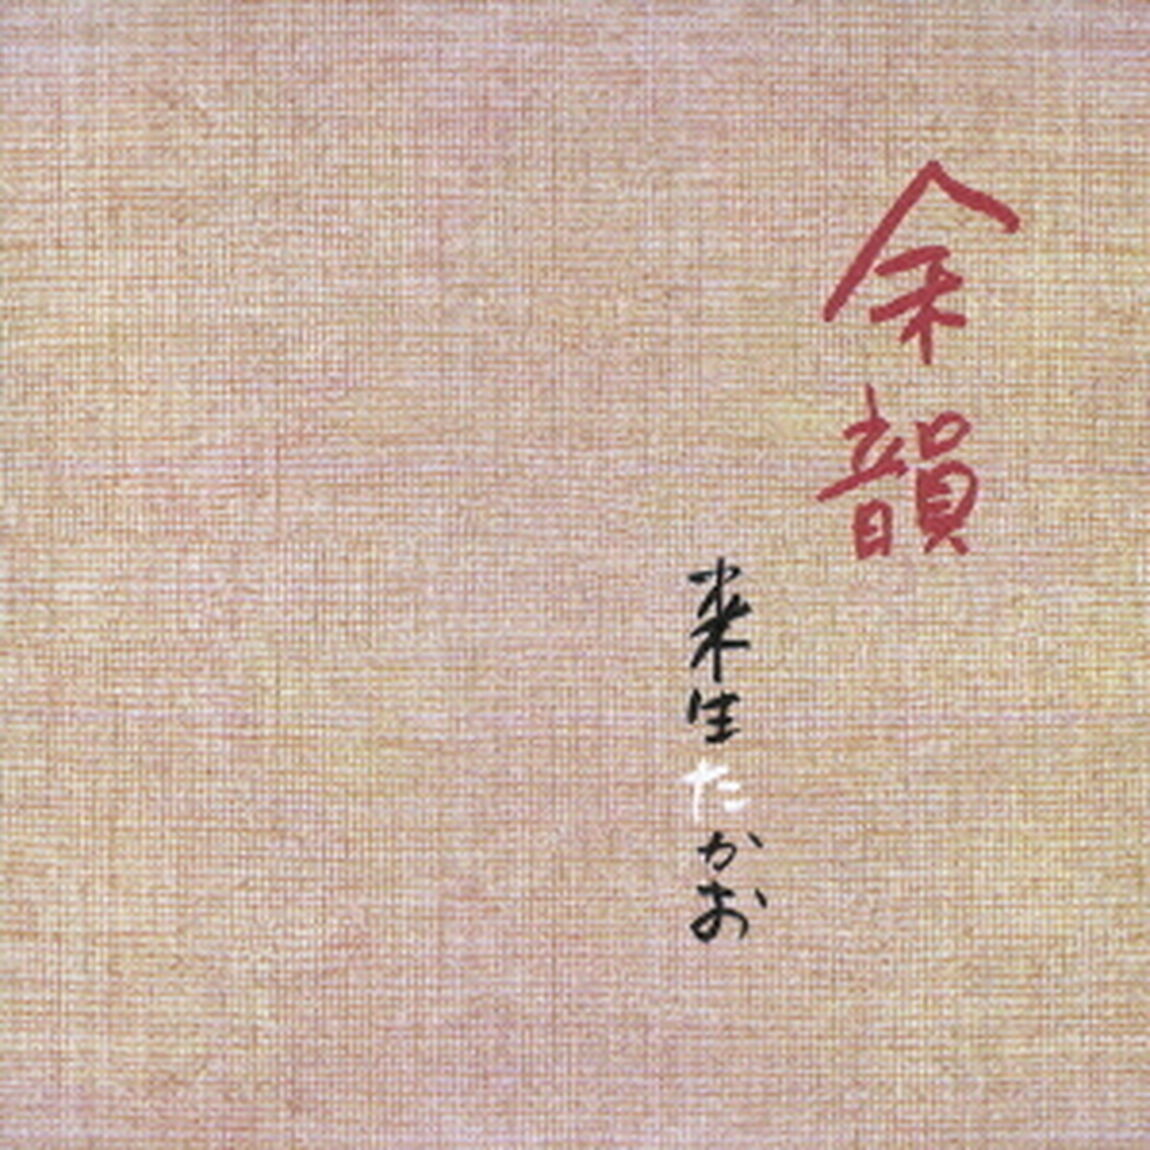 余韻
来生たかお